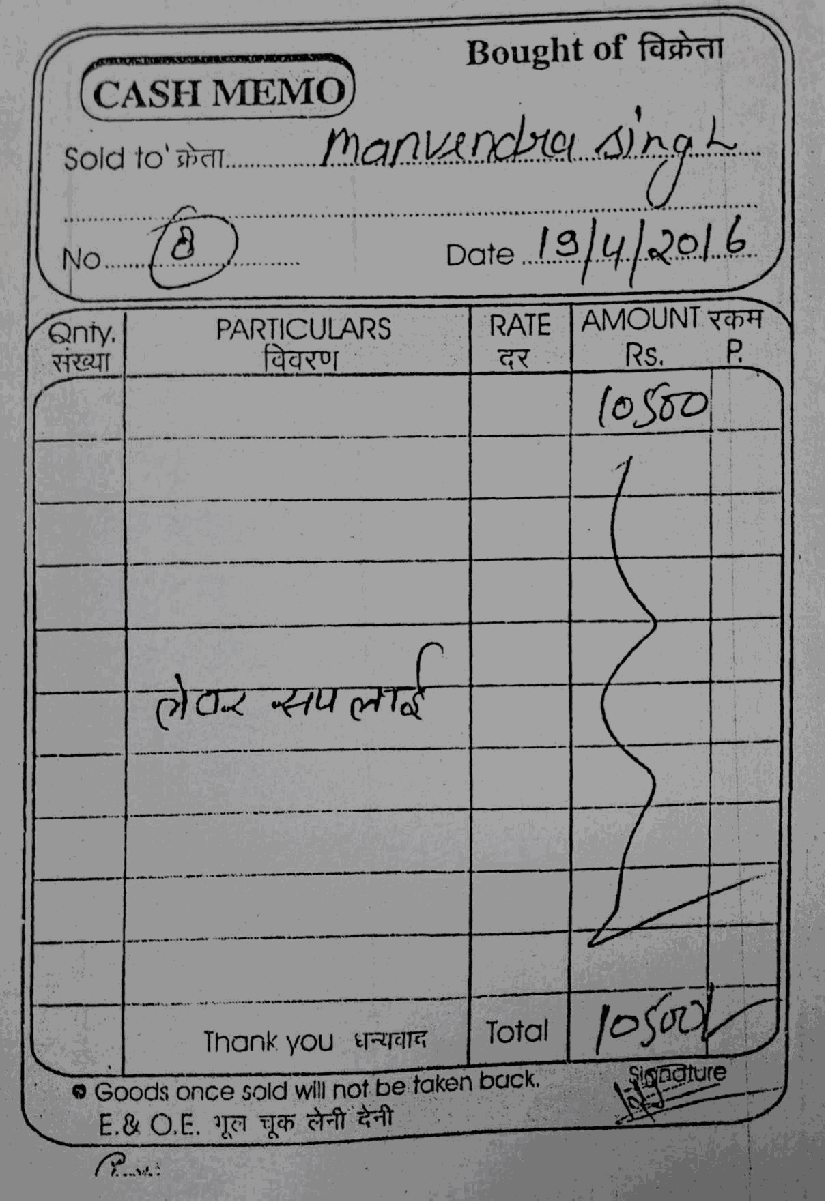 Bought of विक्रेता
CASH MEMO
Sold to क्रेता Manvendra singh
No. 8 Date 19/4/2016
Qnty. PARTICULARS RATE AMOUNT रकम
संख्या विवरण दर Rs. P.
10500
लेवर सपलाई
Thank you धन्यवाद Total 10500
Goods once sold will not be taken back. Signature
E.& O.E. भूल चूक लेनी देनी